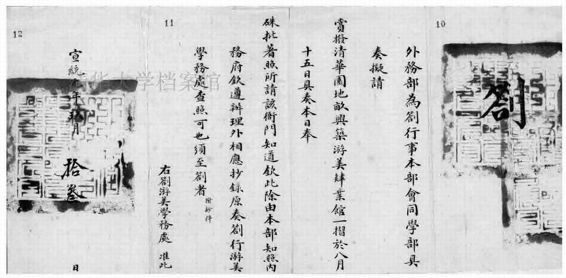 10
劄
外務部為劄行事本部會同學部具
奏擬請
賞撥清華園地畝興築游美肄業館一摺於八月
十五日具奏本日奉
硃批著照所請該衙門知道欽此除由本部知照內
務府欽遵辦理外相應抄錄原奏劄行游美
11
學務處查照可也須至劄者
右劄游美學務處 准此
12
宣統元年 月 拾叁 日
大学档案馆